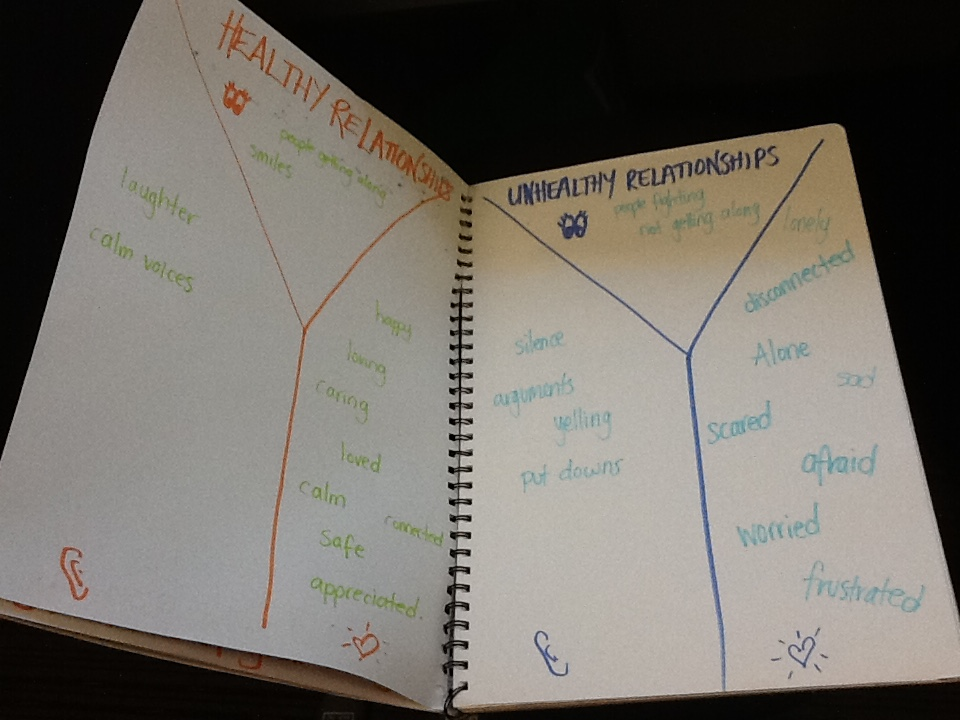 HEALTHY RELATIONSHIPS
people getting along
smiles
laughter
calm voices
happy
loving
caring
loved
calm
connected
safe
appreciated.
UNHEALTHY RELATIONSHIPS
people fighting
not getting along
silence
arguments
yelling
put downs
lonely
disconnected
Alone
sad
scared
afraid
worried
frustrated